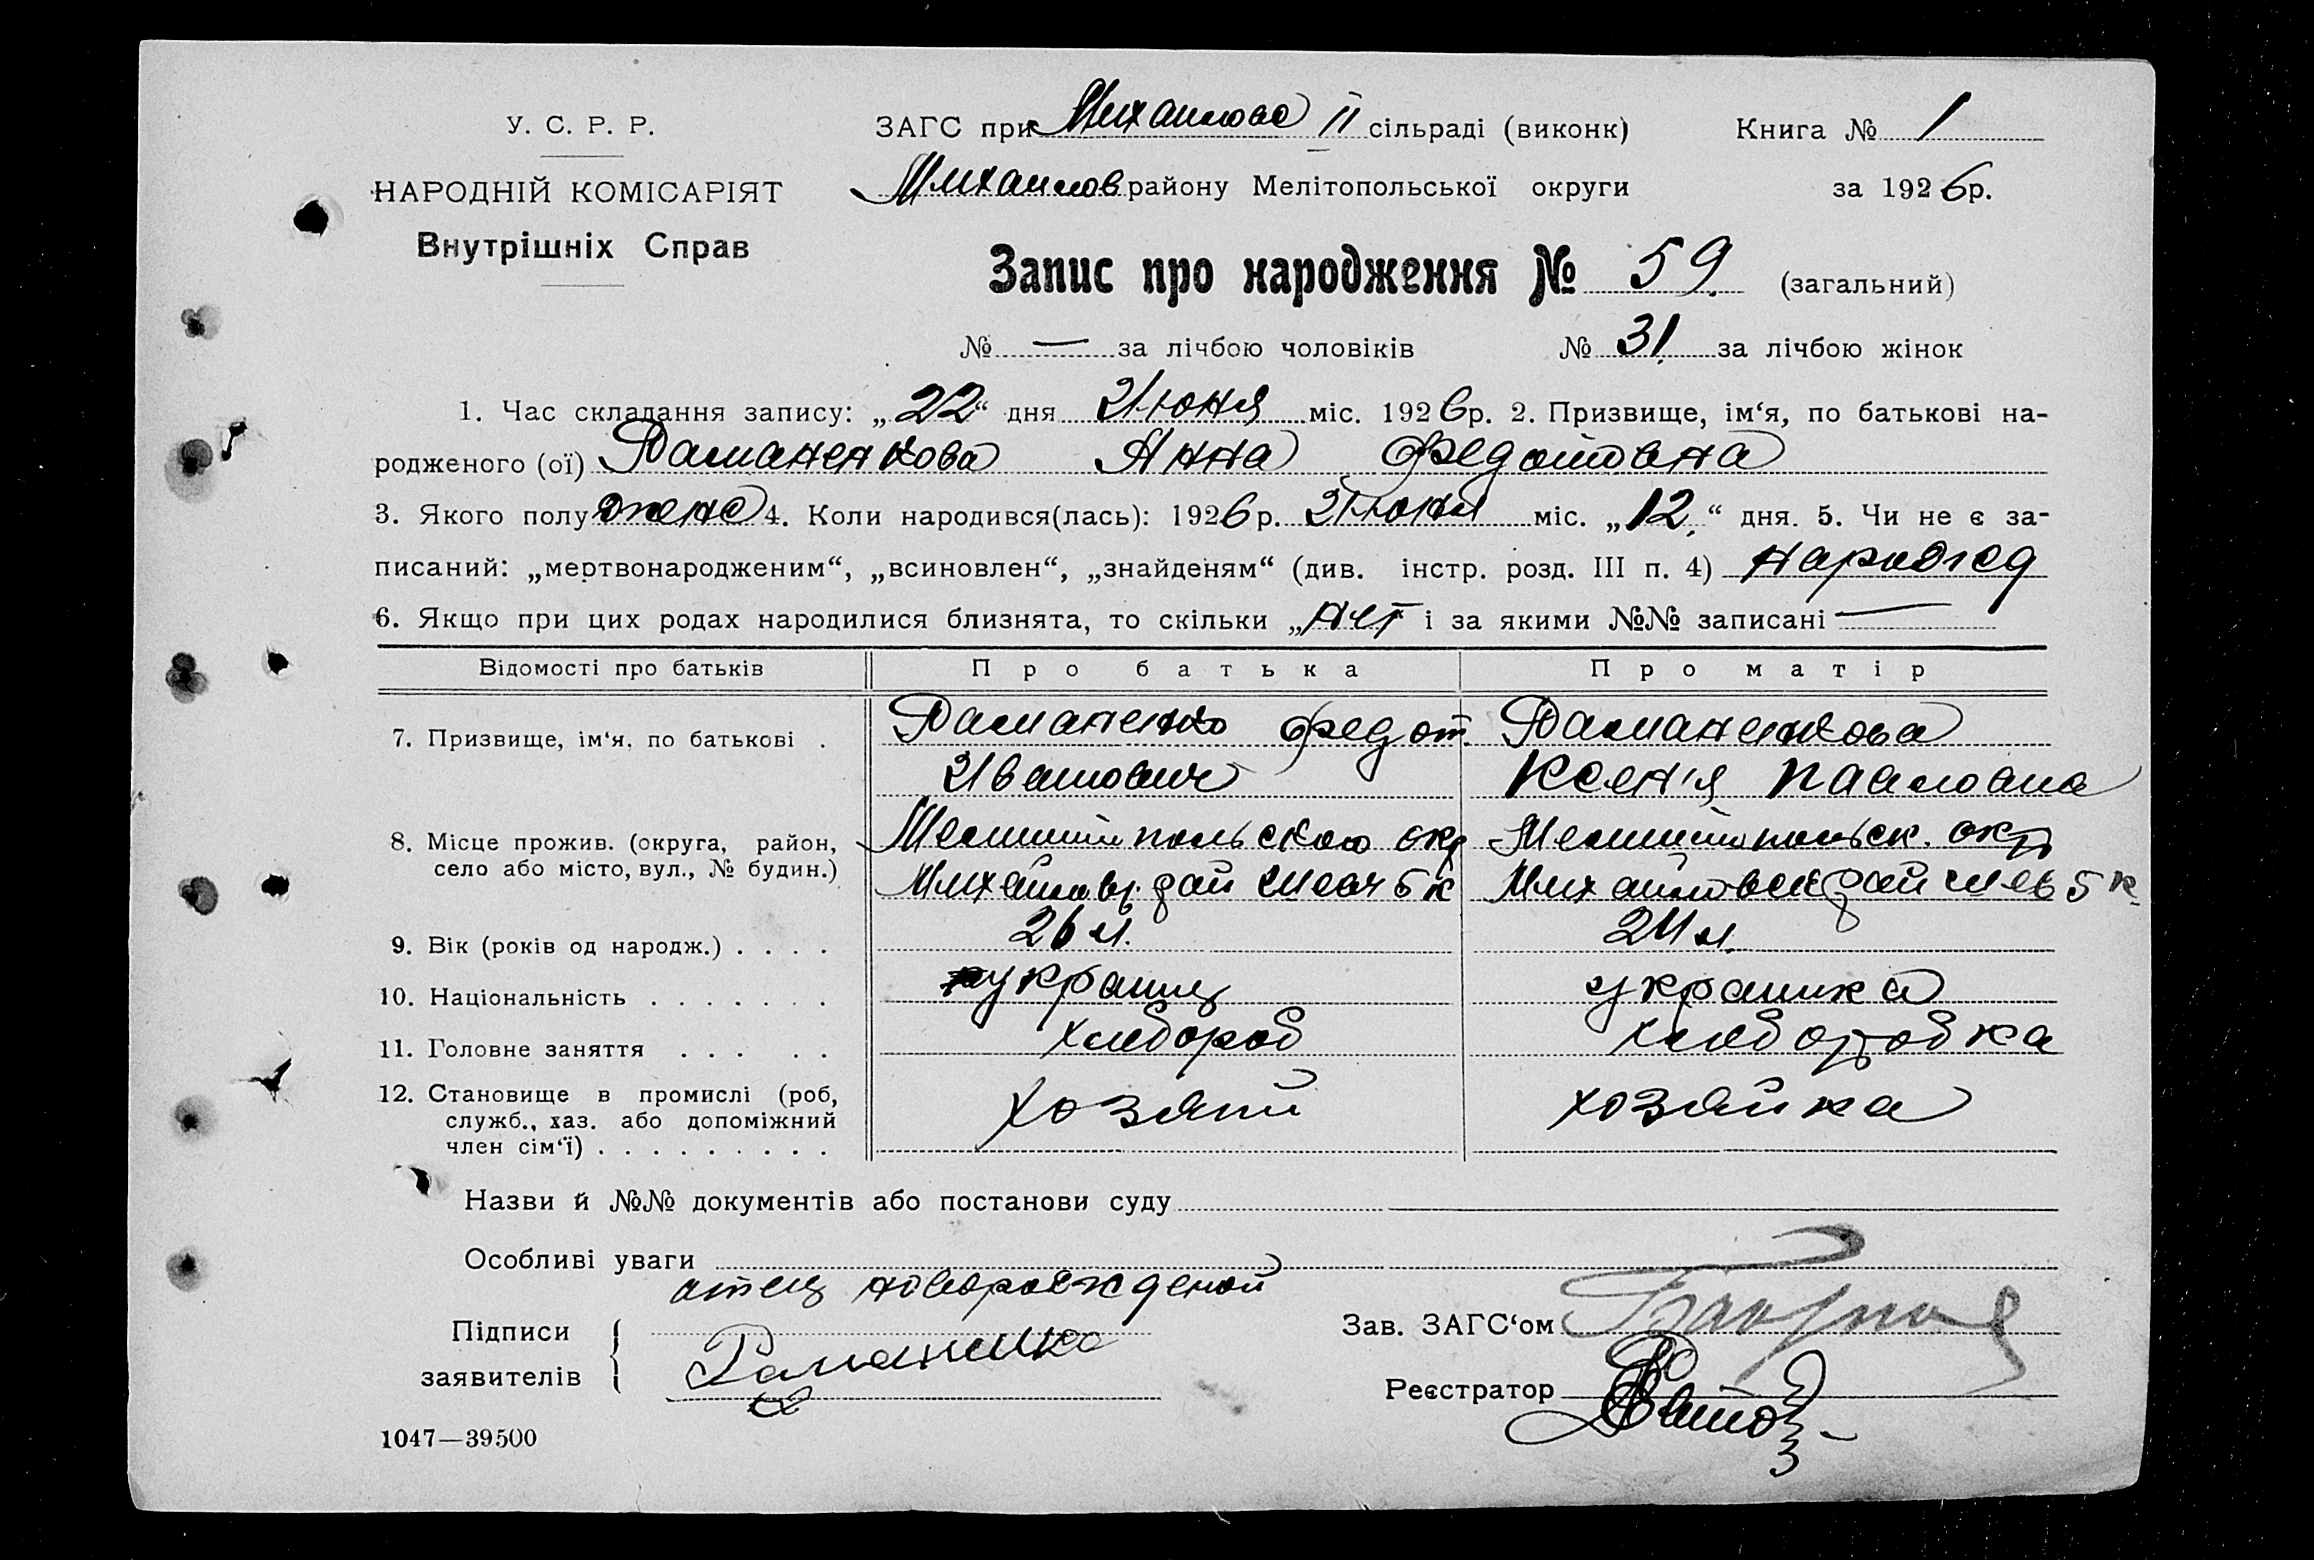 У. С. Р. Р.
НАРОДНІЙ КОМІСАРІЯТ
Внутрішніх Справ
ЗАГС при Михайлово II сільраді (виконк) Книга № 1
Михайлов району Мелітопольської округи за 1926р.
Запис про народження № 59 (загальний)
№ — за лічбою чоловіків № 31 за лічбою жінок
1. Час складання запису: „22“ дня Июня міс. 1926р. 2. Призвище, ім‘я, по батькові на-
родженого (ої) Раманенкова Анна Федотовна
3. Якого полу жено 4. Коли народився(лась): 1926р. Июня міс. „12“ дня. 5. Чи не є за-
писаний: „мертвонародженим“, „всиновлен“, „знайденям“ (див. інстр. розд. III п. 4)
6. Якщо при цих родах народилися близнята, то скільки „нет і за якими №№ записані —
Відомості про батьків Про батька Про матір
7. Призвище, ім‘я, по батькові . Раманенко Федот Раманенкова
Иванович Ксенія Павловна
8. Місце прожив. (округа, район, Мелитопольского окр Мелитопольск. окр
село або місто, вул., № будин.) 5 к 5 к
9. Вік (років од народж.) . . . . 26 л. 24 л.
10. Національність . . . . . . . украинец украинка
11. Головне заняття . . . . . хлебороб хлеборобка
12. Становище в промислі (роб, хозяин хозяйка
служб., хаз. або допоміжний
член сім‘ї) . . . . . . . . .
Назви й №№ документів або постанови суду
Особливі уваги
отец новорожденой
Підписи
заявителів
Раманенко
Зав. ЗАГС‘ом
Реєстратор
1047—39500